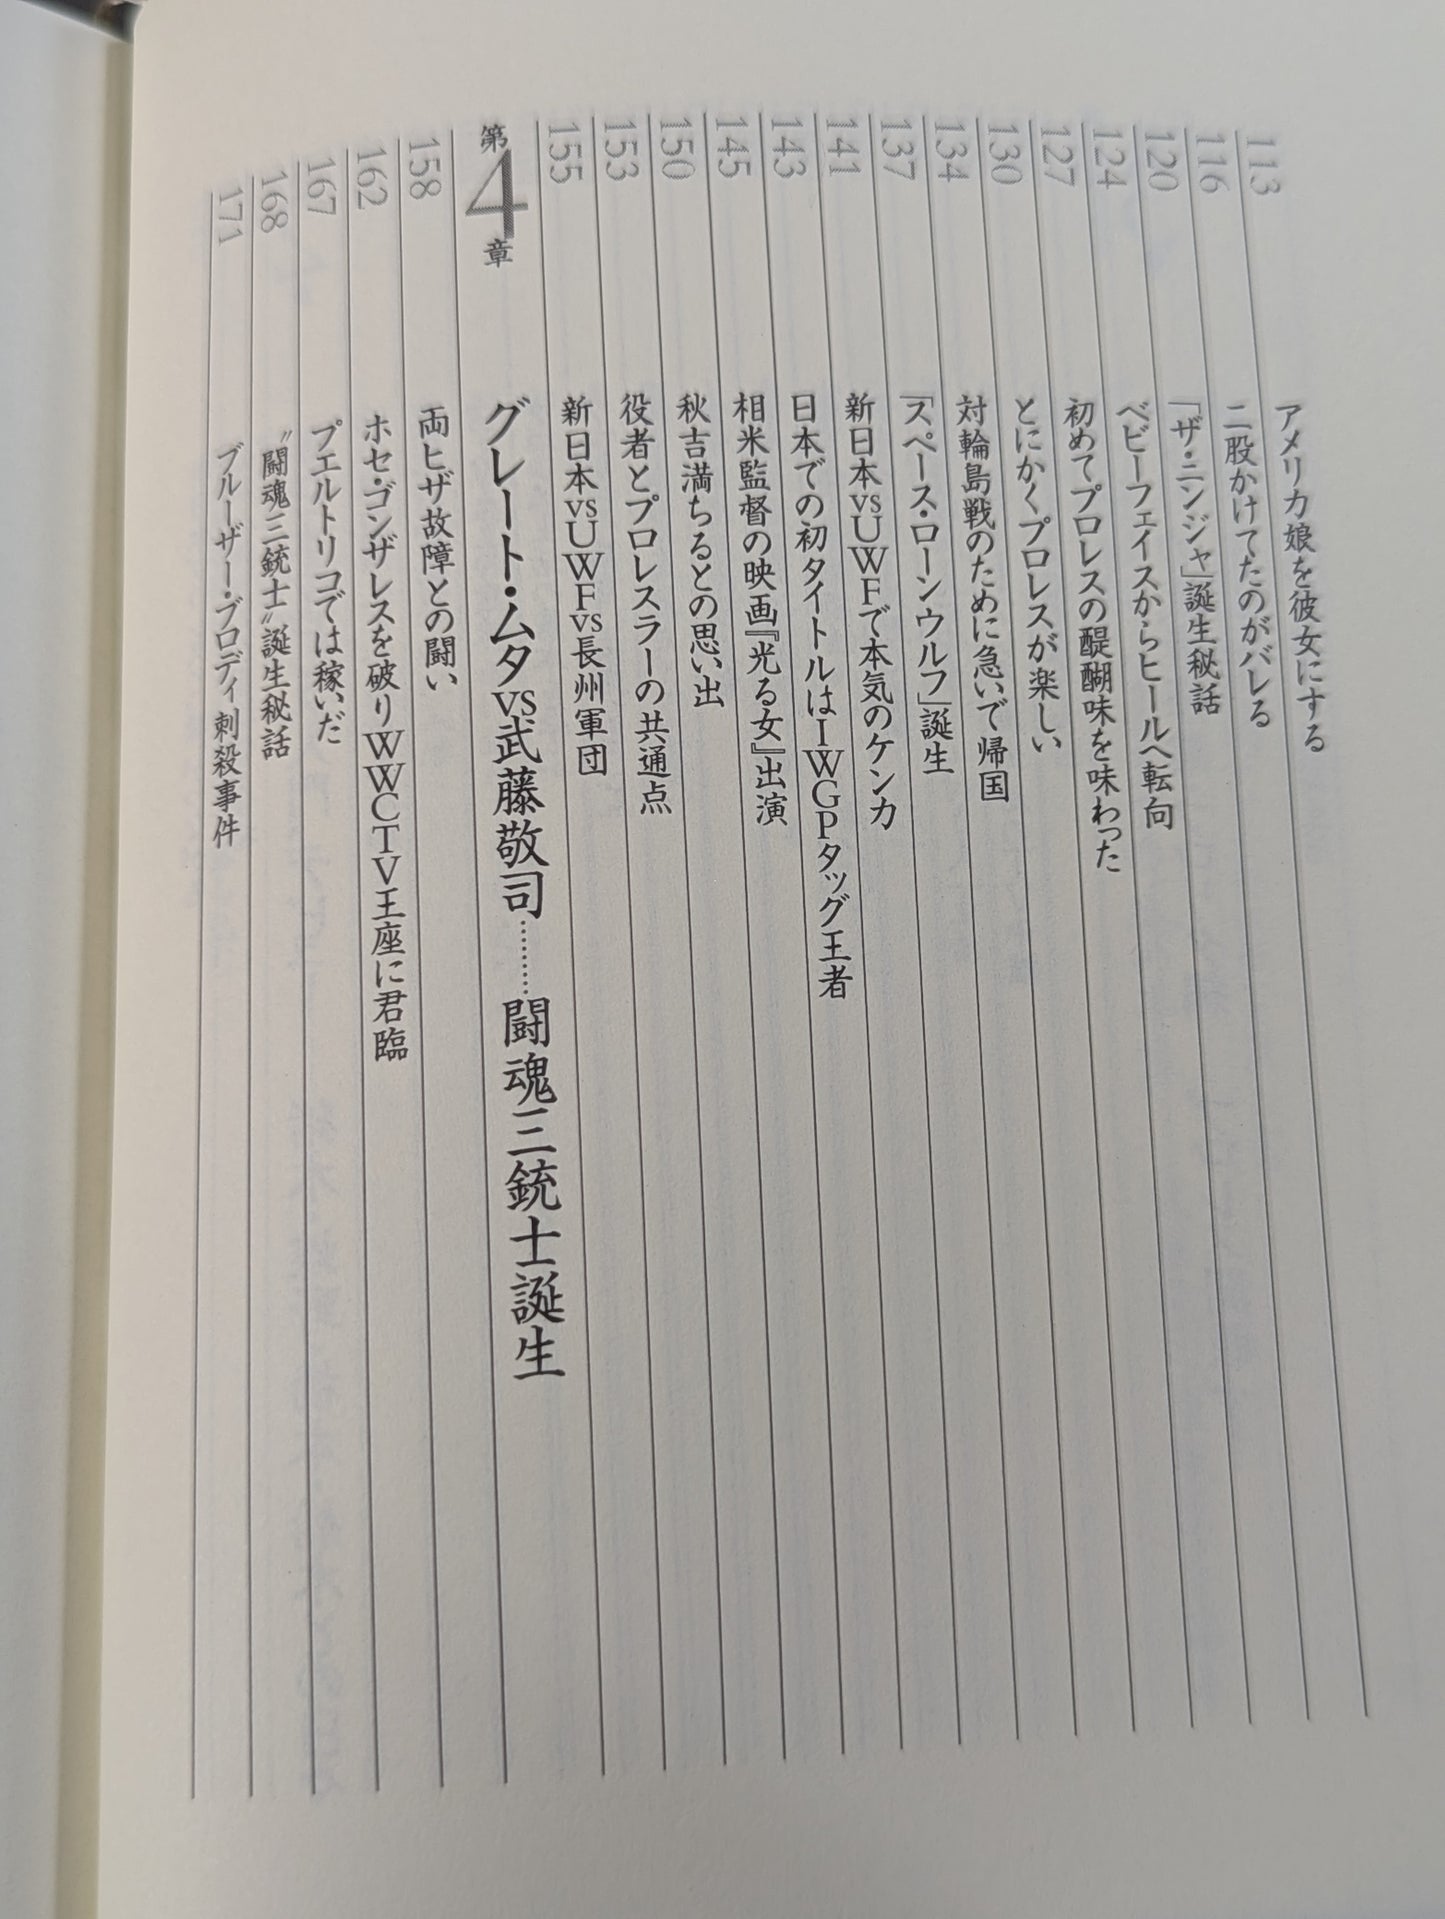 113 アメリカ娘を彼女にする
116 二股かけてたのがバレる
120 「ザ・ニンジャ」誕生秘話
124 ベビーフェイスからヒールへ転向
127 初めてプロレスの醍醐味を味わった
130 とにかくプロレスが楽しい
134 対輪島戦のために急いで帰国
137 「スペース・ローンウルフ」誕生
141 新日本vsUWFで本気のケンカ
143 日本での初タイトルはIWGPタッグ王者
145 相米監督の映画『光る女』出演
150 秋吉満ちるとの思い出
153 役者とプロレスラーの共通点
155 新日本vsUWFvs長州軍団
第4章 グレート・ムタvs武藤敬司………闘魂三銃士誕生
158 両ヒザ故障との闘い
162 ホセ・ゴンザレスを破りWWCTV王座に君臨
167 プエルトリコでは稼いだ
168 〝闘魂三銃士〟誕生秘話
171 ブルーザー・ブロディ刺殺事件